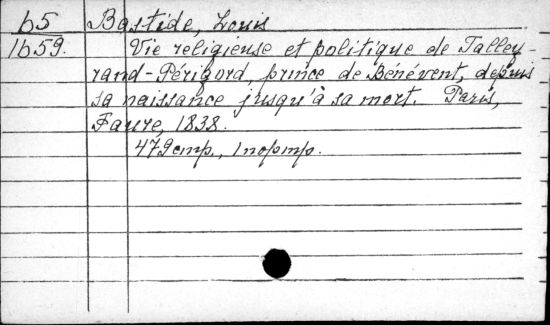 b5 Bastide, Louis
1b59. Vie religieuse et politique de Talley-
rand-Périgord, prince de Bénévent, depuis
sa naissance jusqu'à sa mort. Paris,
Faure, 1838.
479